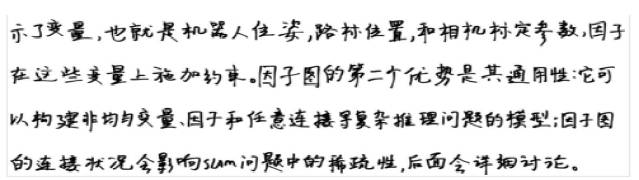 示了变量,也就是机器人位姿,路标位置,和相机标定参数,因子
在这些变量上施加约束。因子图的第二个优势是其通用性:它可
以构建非均匀变量、因子和任意连接等复杂推理问题的模型;因子图
的连接状况会影响slam问题中的稀疏性,后面会详细讨论。